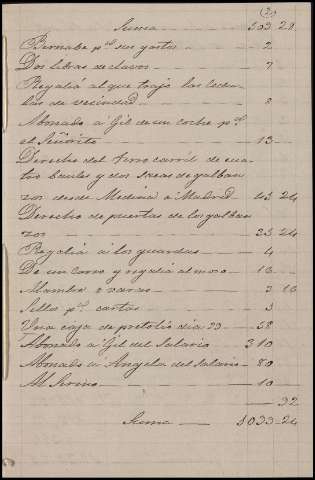 (2)
Suma 303-28
Bernabe p.a sus gastos 2
Dos libras de clavos 7
Regalia al que trajo las
de vecindad 8
Abonado á Gil de un coche p.a
el Señorito 13
Derecho del ferro carril de cua
tro baules y dos sacas de garban
zos desde Medina á Madrid 43 24
Derecho de puertas de los garban
zos 23-24
Regalia á los guardas 4
De un carro y regalia al mozo 16
2 varas 3 16
Sellos p.a cartas 3
Una caja de petolio dia 23 58
Abonado á Gil del Salario 310
Abonado a Angela del salario 80
Al Sereno 10
32
Suma 1033-24